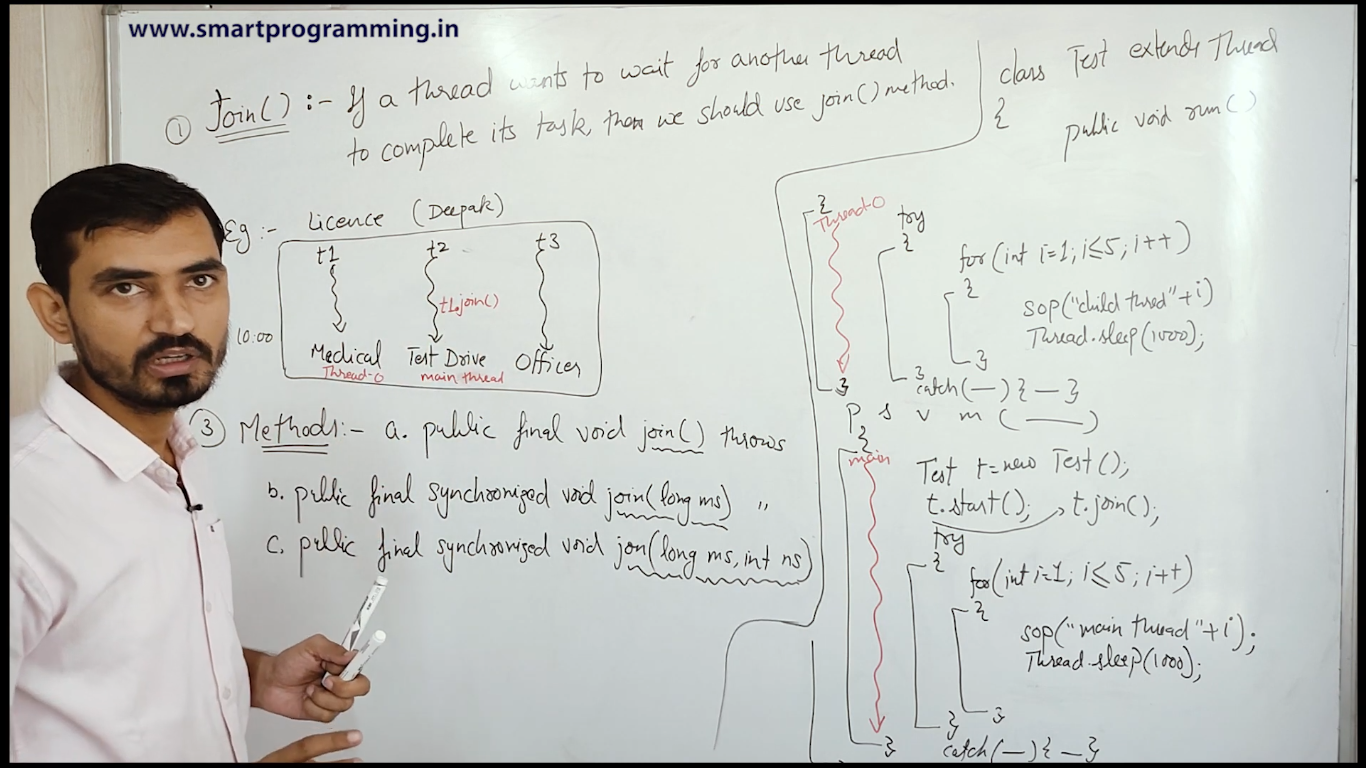 www.smartprogramming.in
① Join() :- If a thread wants to wait for another thread
to complete its task, then we should use join() method.
Eg :- Licence (Deepak)
t1 t2 t3
t1.join()
10:00
Medical Test Drive Officer
Thread-0 main thread
③ Methods:- a. public final void join() throws
b. public final synchronized void join(long ms) "
c. public final synchronized void jon(long ms, int ns)
class Test extends Thread
{
public void run()
{
Thread-0
try
{
for(int i=1; i≤5; i++)
{
sop("child thred"+i)
Thread.sleep(1000);
}
}
catch(—) { — }
}
P s v m (——)
{
main
Test t=new Test();
t.start(); t.join();
try
{
for(int i=1; i≤5; i++)
{
sop("main thread"+i);
Thread.sleep(1000);
}
}
catch(—) { — }
}